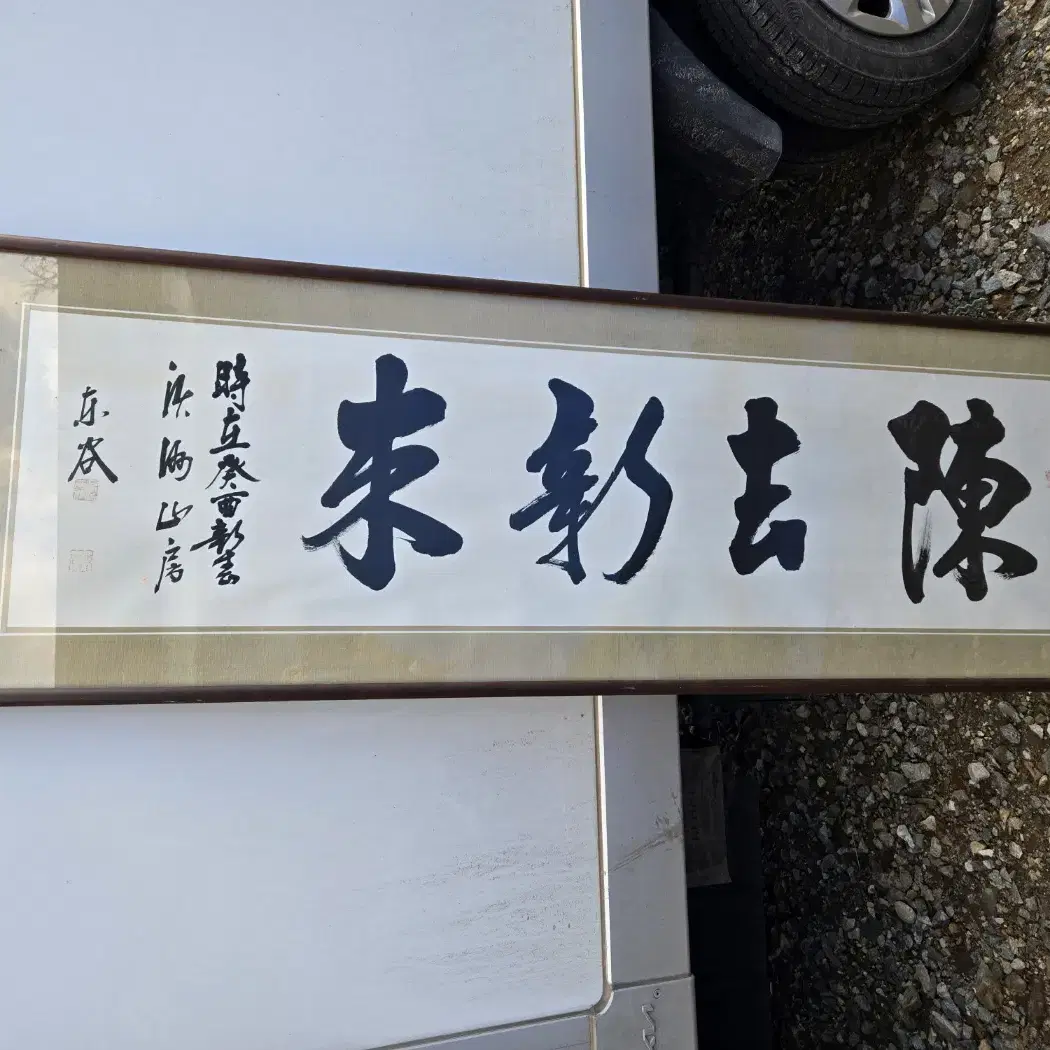 陳去新來
時在癸酉新春
山房
東谷